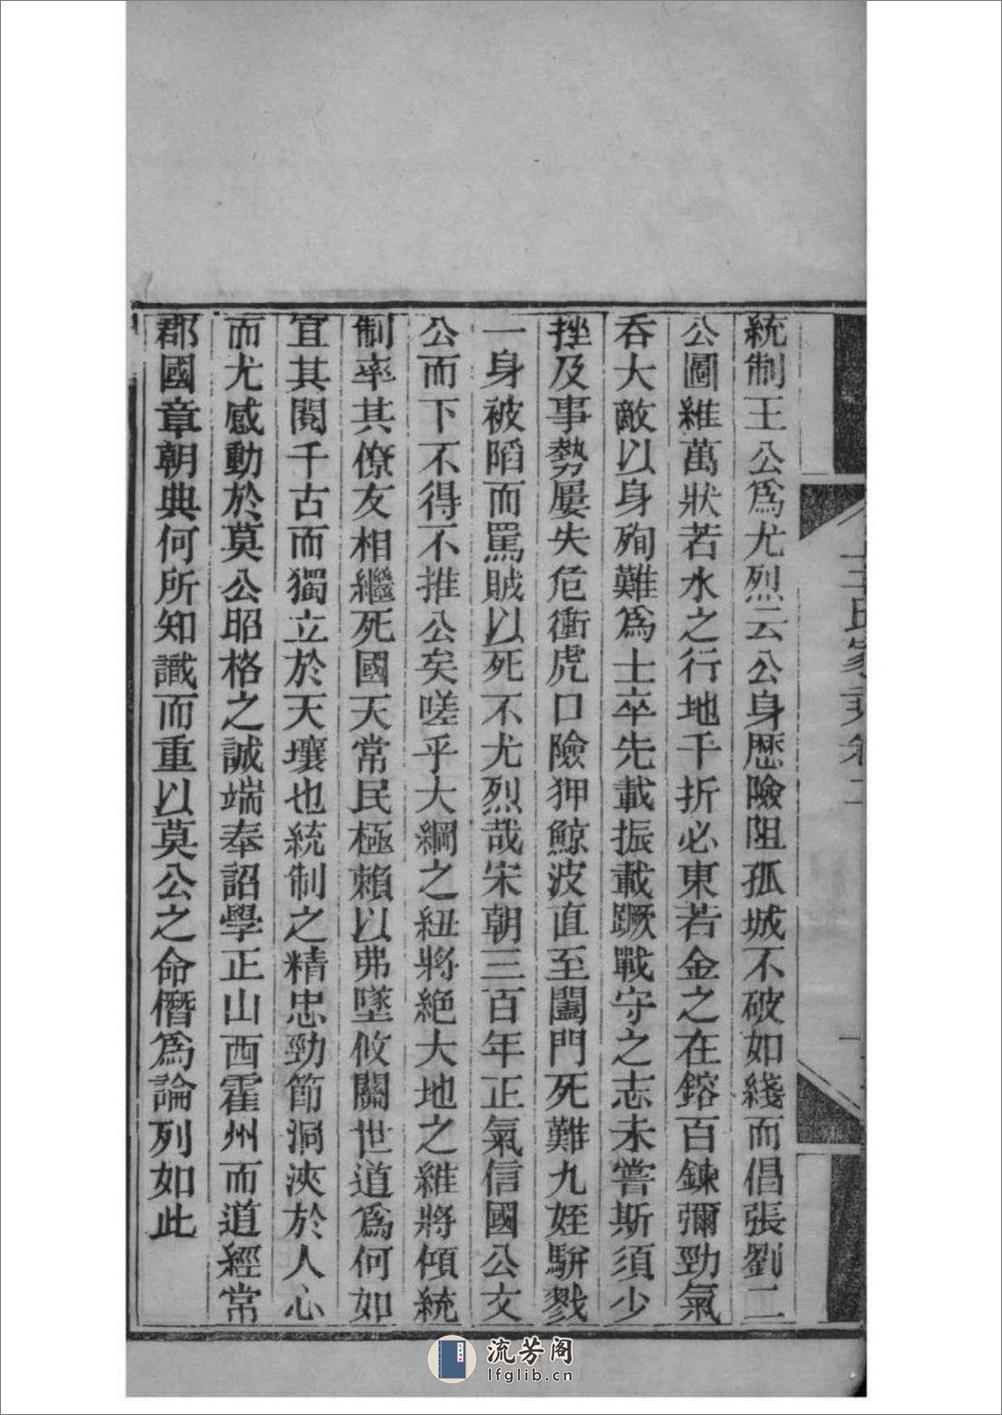 統制王公爲尤烈云公身歷險阻孤城不破如綫而倡張劉二
公圖維萬狀若水之行地千折必東若金之在鎔百鍊彌勁氣
吞大敵以身殉難爲士卒先載振載蹶戰守之志未嘗斯須少
挫及事勢屢失危衝虎口險狎鯨波直至闔門死難九姪駢戮
一身被陷而罵賊以死不尤烈哉宋朝三百年正氣信國公文
公而下不得不推公矣嗟乎大綱之紐將絕大地之維將傾統
制率其僚友相繼死國天常民極賴以弗墜攸關世道爲何如
宜其閱千古而獨立於天壤也統制之精忠勁節洞浹於人心
而尤感動於莫公昭格之誠端奉詔學正山西霍州而道經常
郡國章朝典何所知識而重以莫公之命僭爲論列如此
流芳阁
lfglib.cn